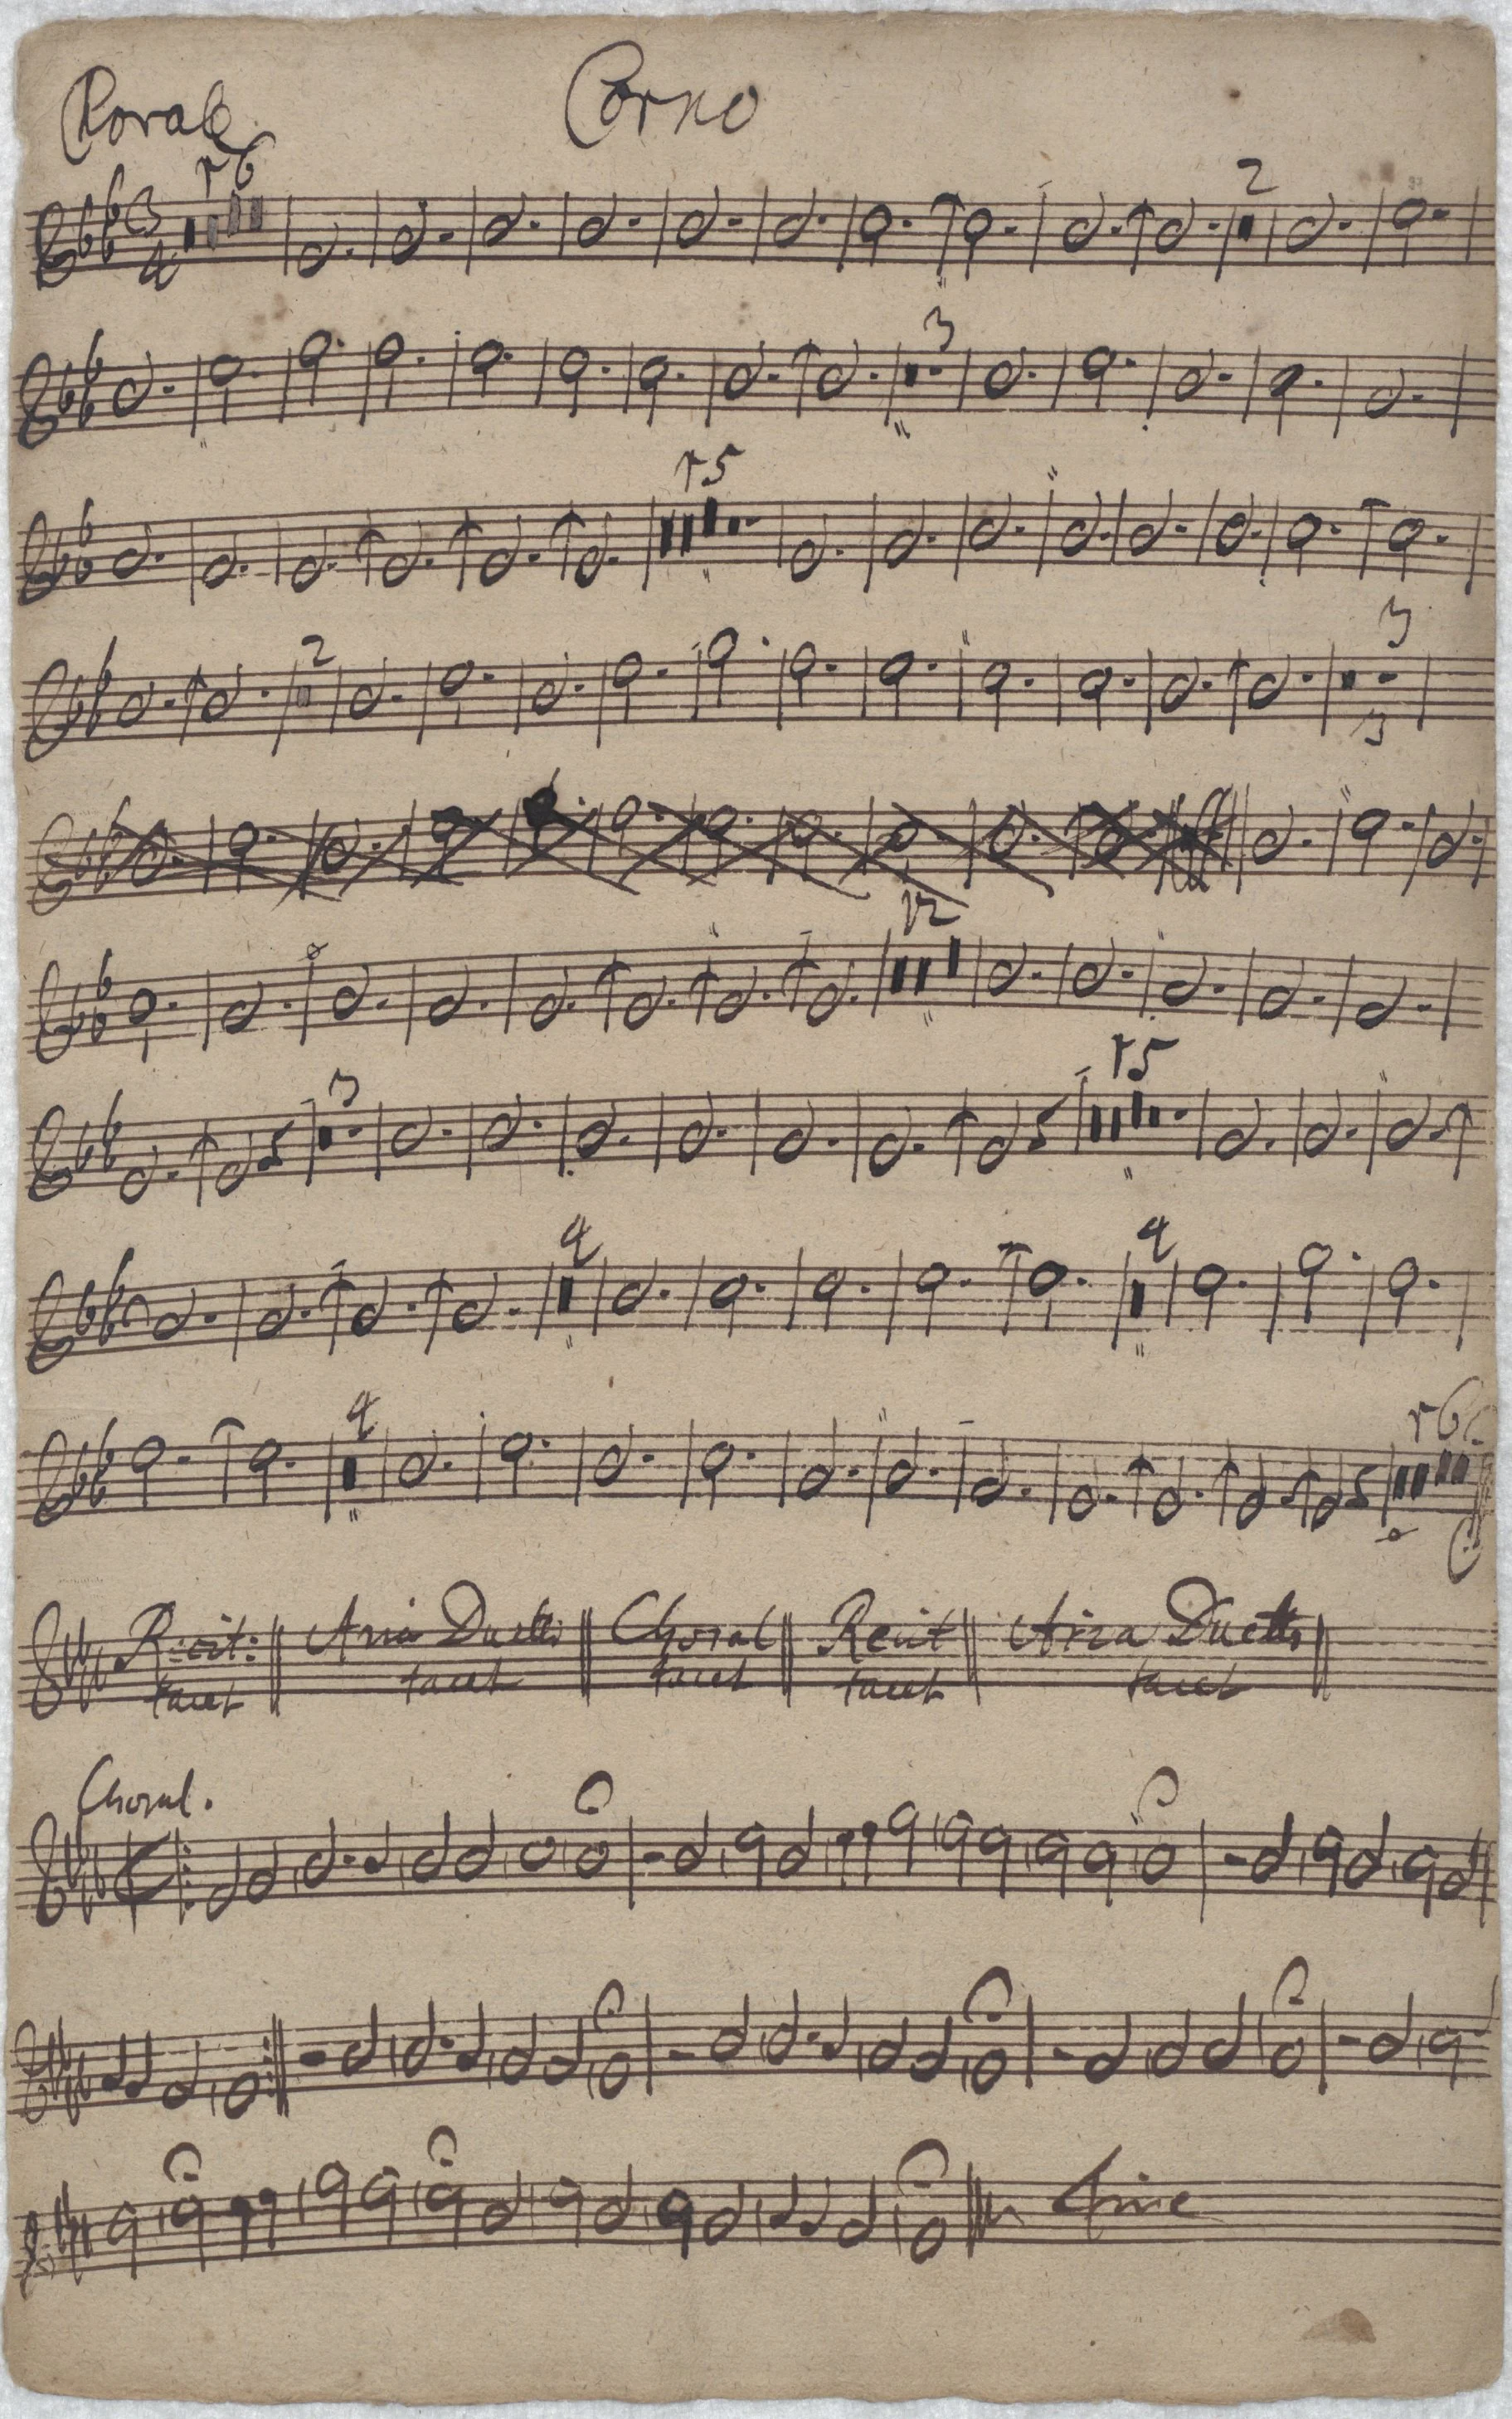 Coral Corno
3 4 16 2
3
15
2 3
3
12
3 15
4 4
4 16
Recit: Aria Duetto Choral Recit Aria Duetto
tacet tacet tacet tacet tacet
Choral.
Fine